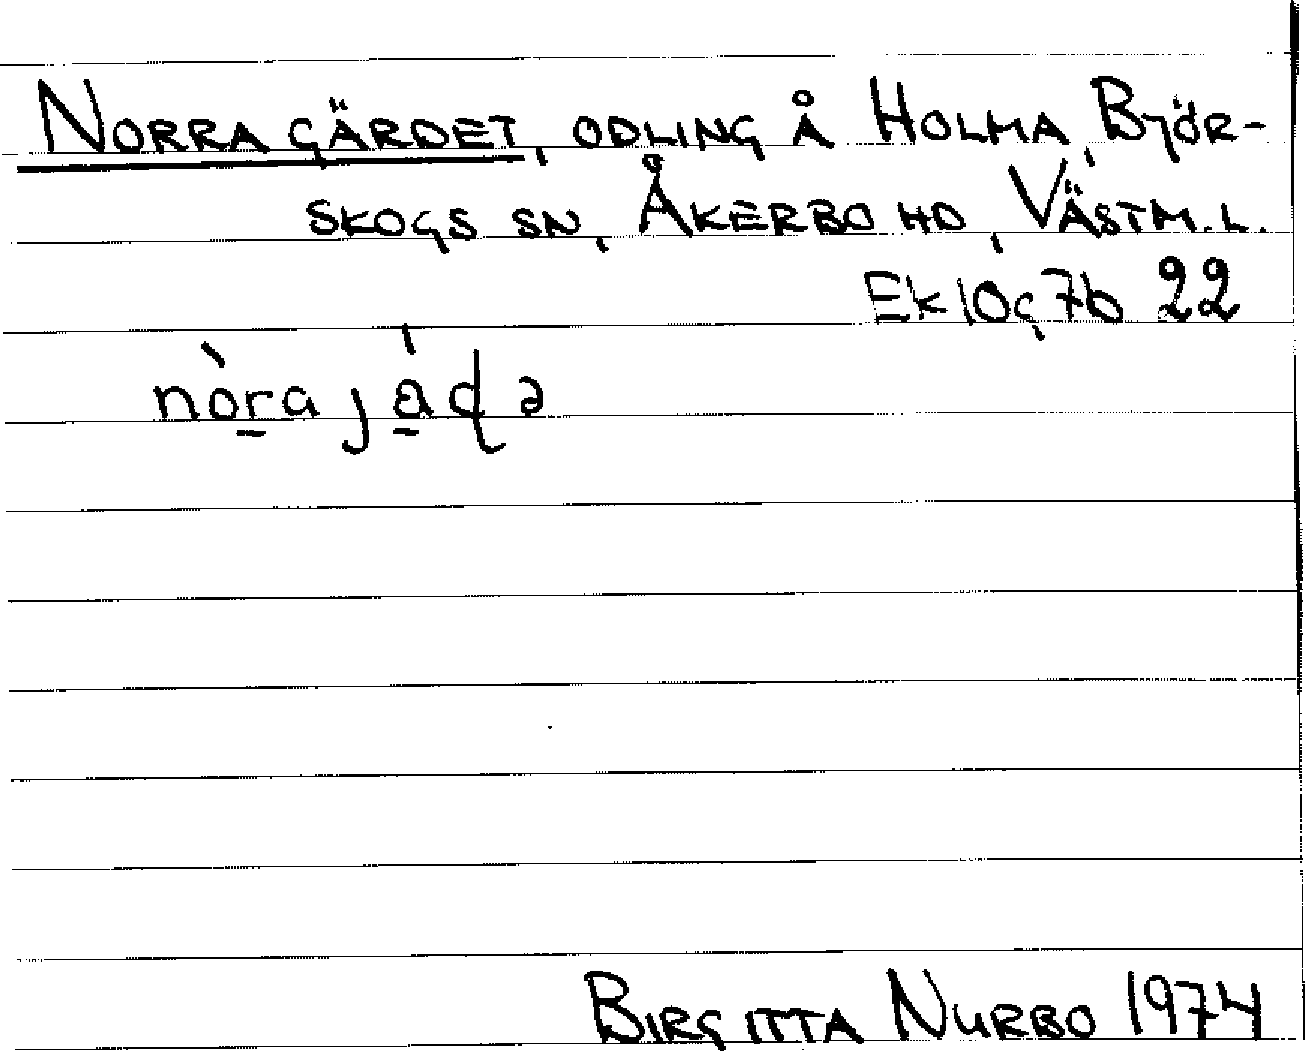 NORRA GÄRDET, ODLING Å HOLMA, BJÖR-
SKOGS SN, ÅKERBO HD, VÄSTM. L.
Ek 10g7b 22
BIRGITTA NURBO 1974